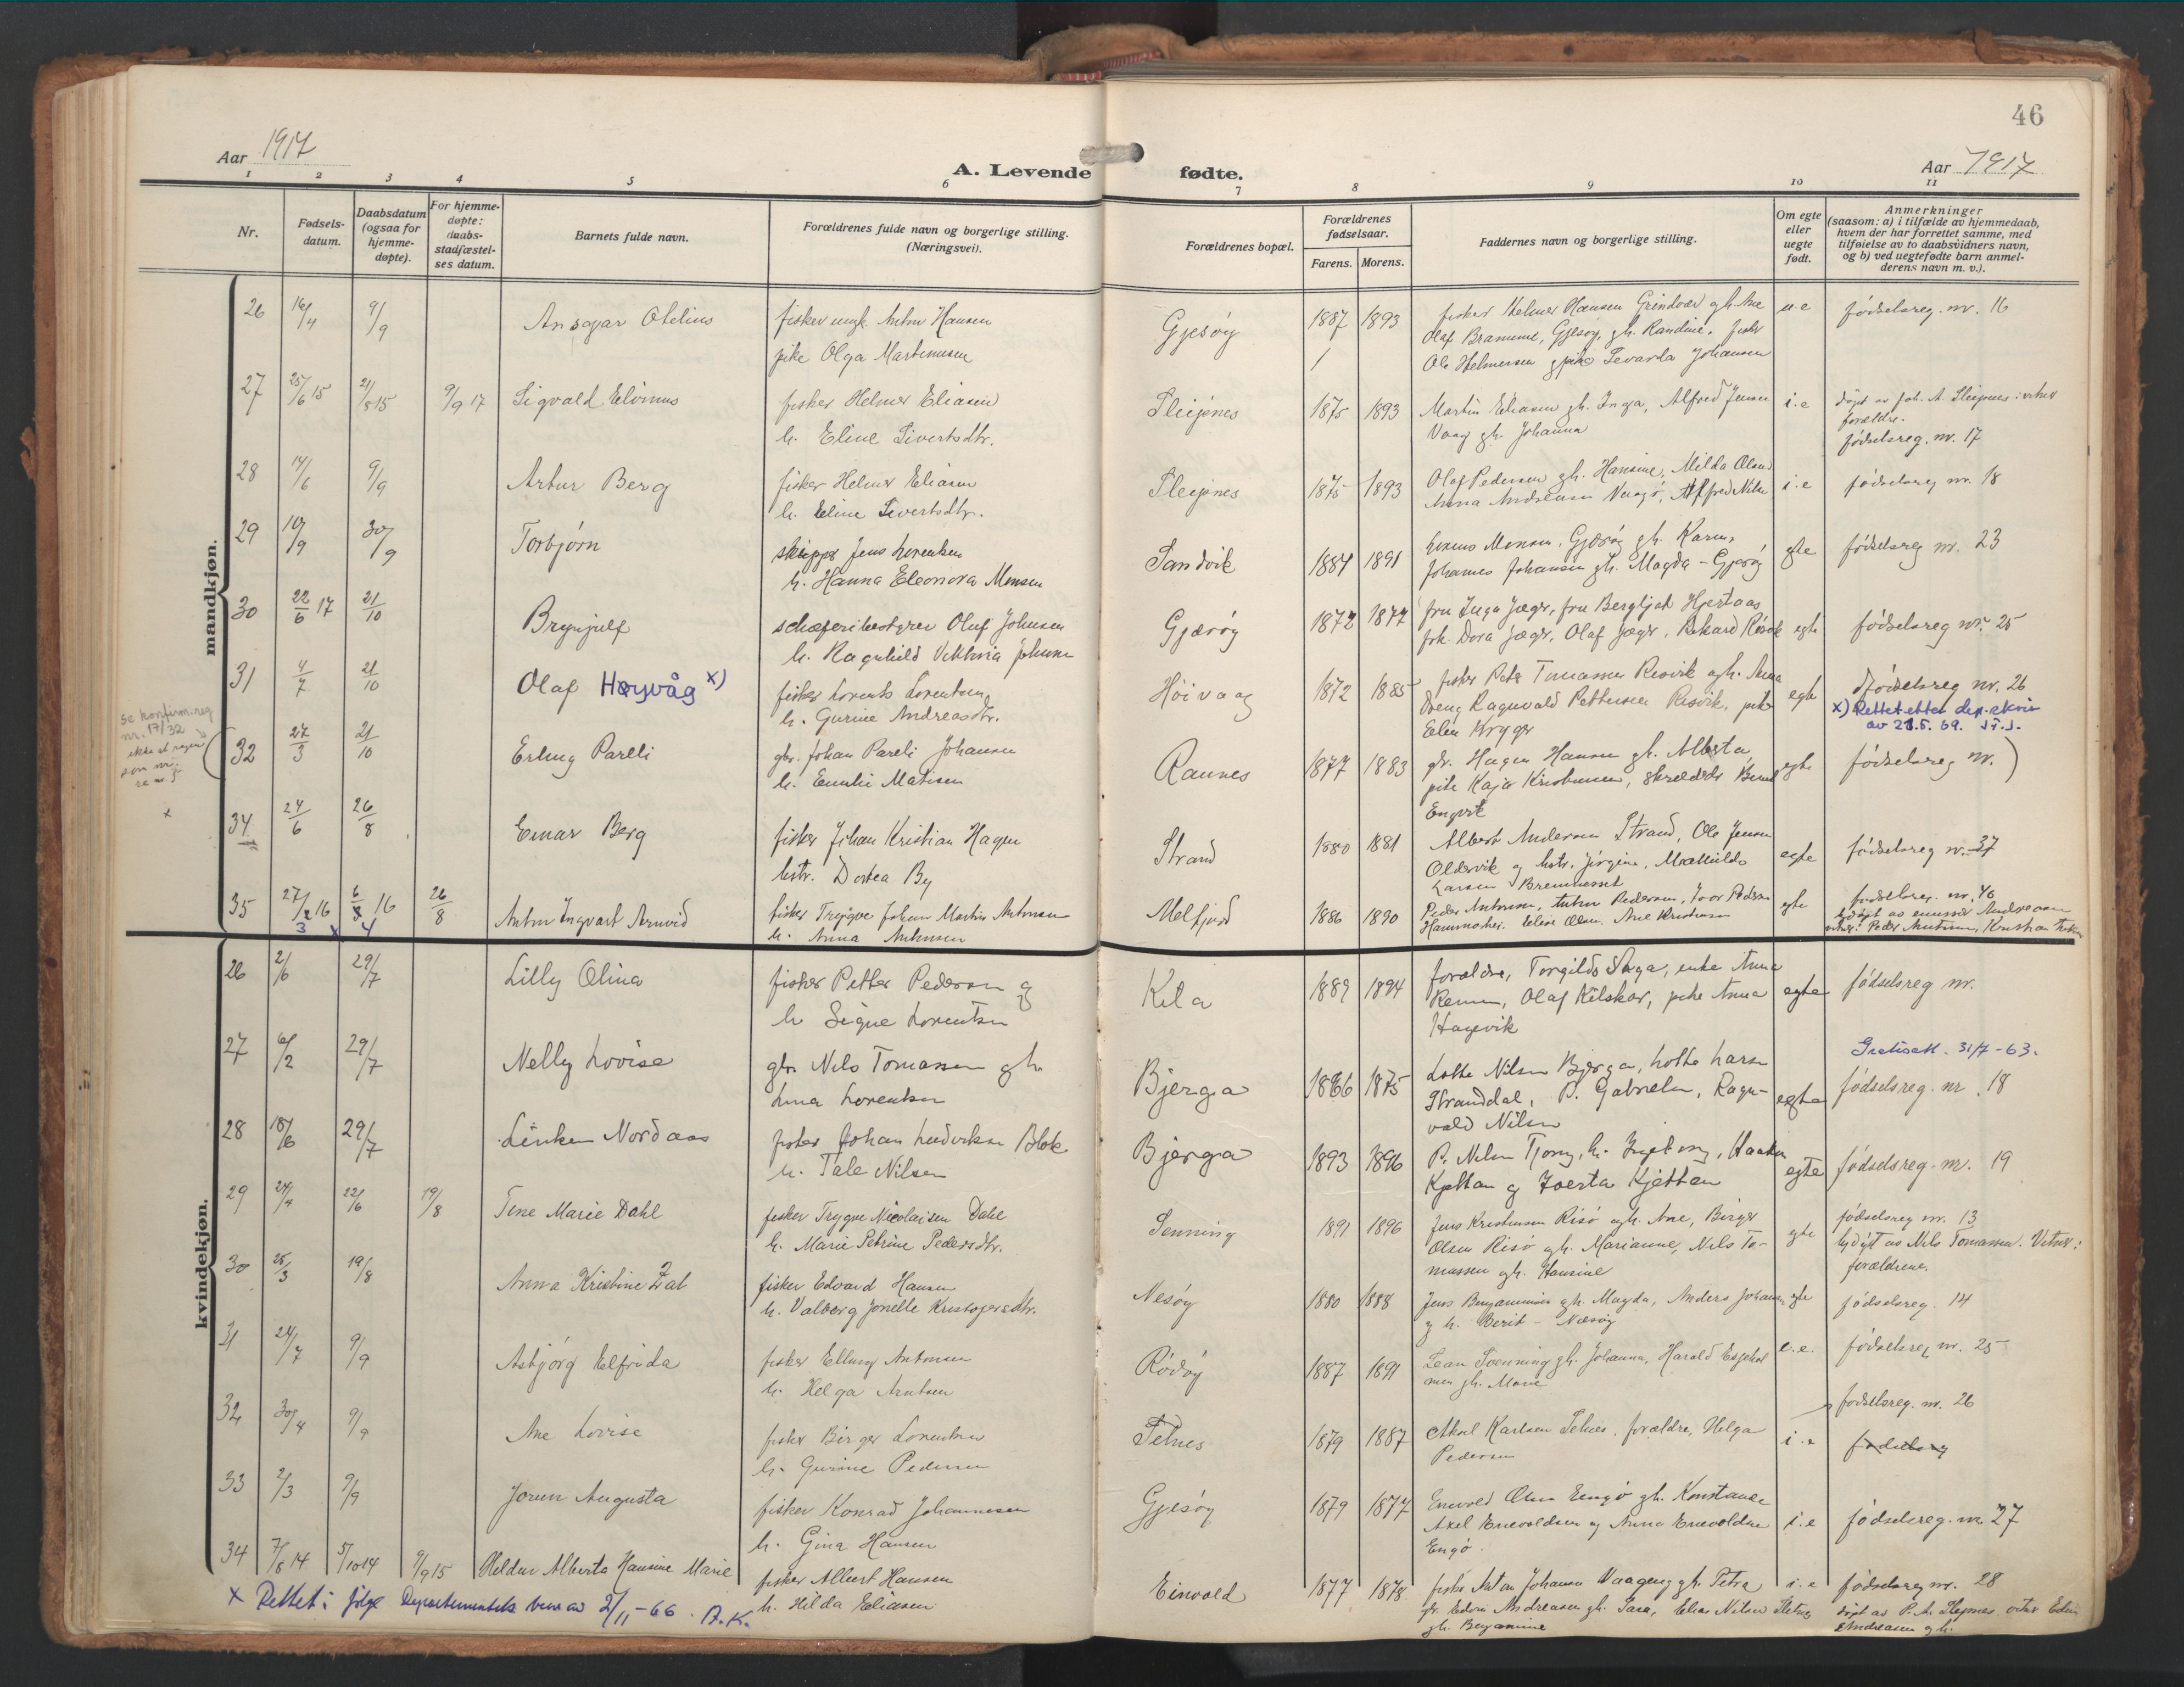 46
Aar 1917
A. Levende fødte.
Aar 1917
1 2 3 4 5 6 7 8 9 10 11
Nr.
Fødsels-
datum.
Daabsdatum
(ogsaa for
hjemme-
døpte).
For hjemme-
døpte:
daabs-
stadfæstel-
ses datum.
Barnets fulde navn.
Forældrenes fulde navn og borgerlige stilling.
(Næringsvei).
Forældrenes bopæl.
Forældrenes
fødselsaar.
Farens. Morens.
Faddernes navn og borgerlige stilling.
Om egte
eller
uegte
født.
Anmerkninger
(saasom: a) i tilfælde av hjemmedaab,
hvem der har forrettet samme, med
tilføielse av to daabsvidners navn,
og b) ved uegtefødte barn anmel-
derens navn m. v.).
mandkjøn.
26 16/4 9/9 Ansgar Otelius fisker ungk. Anton Hansen
pike Olga Martinusen
Gjesøy 1887 1893 fisker Helmer Hansen Grindvær gh. Ane
Olaf Brammer, Gjesøy, gh. Randine, fisker
Ole Helmersen pike Sevarda Johansen
u.e fødselsreg. nr. 16
27 25/6 15 21/8 15 9/9 17 Sigvald Elvinus fisker Helmer Eliasen
h. Eline Sivertsdtr.
Sleipnes 1875 1893 Martin Eliasen gh. Inga, Alfred Jensen
Vaag gh. Johanna
i.e døpt av Joh. A. Sleipnes: vitner
forældre.
fødselsreg. nr. 17
28 14/6 9/9 Artur Berg fisker Helmer Eliasen
h. Eline Sivertsdtr.
Sleipnes 1875 1893 Olaf Pedersen gh. Hansine, Milda Olsen
Anna Andreasen, Alfred Nilsen
i.e fødselsreg nr. 18
29 10/9 30/9 Torbjørn skipper Jens Lorentsen
h. Hanna Eleonora Monsen
Sandvik 1884 1891 Monsen, Gjerøy gh. Karen,
Johannes Johansen gh. Magda - Gjerøy
egte fødselsreg nr. 23
30 22/6 17 21/10 Brynjulf schæferibestyrer Oluf Johnsen
h. Ragnhild Viktoria Johnsen
Gjærøy 1872 1877 fru Inga Jæger, fru Bergljot Hjertaas,
frk. Dora Jæger, Olaf Jæger, Rikard Risvik
egte fødselsreg nr. 25
31 4/7 21/10 Olaf Høyvåg x) fisker Lorents Lorentsen
h. Gurine Andreasdtr.
Høivaag 1872 1885 fisker Peter Tomassen Resvik gh. Anna
Dreng Ragnvald Pettersen Resvik, pike
Elen Krøger
egte fødselsreg nr. 26
x) Rettet etter dep. skriv
av 21.5.69. J.F.J.
se konfirm.reg
nr. 17/32
32 27/3 21/10 Erling Pareli gbr. Johan Pareli Johansen
h. Emilie Matisen
Rannes 1877 1883 gbr. Hagen Hansen gh. Alberta,
pike Kaja Kristensen, skrædder
Engvik
egte fødselsreg nr. )
x
34 24/6 26/8 Einar Berg fisker Johan Kristian Hagen
hstr. Dortea By
Strand 1880 1881 Albert Andersen Strand, Ole Jensen
Oldervik og hstr. Jørgine, Mathilde
Larsen Bremneset
egte fødselsreg nr. 37
35 27/3 16 6/4 16 26/8 Anton Ingvart Arnvid fisker Trygve Johan Martin Antonsen
h. Anna Antonsen
Melfjord 1886 1890 Peder Antonsen, Anton Pedersen, Ivar Pedersen
Hammerhei. Eline Olsen. Ane Kristensen
egte fødselsreg. nr. 46
kvindekjøn.
26 2/6 29/7 Lilly Olina fisker Petter Pedersen og
h. Signe Lorentsen
Kila 1889 1894 forældre, Torgilds Saga, enke Anna
Olaf Kilskar, pike Anna
Hagevik
egte fødselsreg nr.
27 6/2 29/7 Nelly Lovise gbr. Nils Tomassen gh.
Lina Lorentsen
Bjerga 1866 1875 Lotte Nilsen Bjerga, Lotte Larsen
Stranddal, P. Gabrielsen, Ragn-
vald Nilsen
egte 31/7-63.
fødselsreg. nr. 18
28 18/6 29/7 Linken Nordaas fisker Johan Ludviksen Blok
h. Tale Nilsen
Bjerga 1893 1896 P. Nilsen Tjong, h. Ingeborg, Haakon
Kjeltan og Joerta Kjeltan
egte fødselsreg. nr. 19
29 24/4 22/6 19/8 Tine Marie Dahl fisker Trygve Nicolaisen Dahl
h. Marie Petrine Pedersdtr.
Senning 1891 1896 Jens Kristensen Risø gh. Ane, Birger
Olsen Risø gh. Marianne, Nils To-
massen gh. Hansine
egte fødselsreg nr. 13
hjdøpt av Nils Tomassen. Vitner:
forældrene
30 25/3 19/8 Anna Kristine Zal fisker Edvard Hansen
h. Valborg Jonelle Kristofersdtr.
Nesøy 1880 1888 Jens Benjaminsen gh. Magda, Anders Johansen
g h. Berit - Næsøy
egte fødselsreg. 14
31 24/7 9/9 Asbjørg Elfrida fisker Elling Antonsen
h. Helga Arntsen
Rødøy 1887 1891 Svenning gh. Johanna, Harald
gh. Marie
e.e. fødselsreg nr. 25
32 30/4 9/9 Ane Lovise fisker Birger Lorentsen
h. Gurine Pedersen
Selnes 1879 1887 Aksel Karlsen Selnes, forældre, Helga
Pedersen
i.e fødselsreg. nr. 26
fødselsreg
33 2/3 9/9 Jorun Augusta fisker Konrad Johannesen
h. Gina Hansen
Gjesøy 1879 1877 Enevold Olsen Engø gh. Konstanse
Axel Enevoldsen og Anna Enevoldsen
Engø.
i.e fødselsreg. nr. 27
34 7/8 14 5/10 14 9/9 15 Heldur Alberta Hansine Marie fisker Albert Hansen
h. Hilda Eliasen
Einvold 1877 1878 fisker Anton Johansen Vaageng gh. Petra
gbr. Edvin Andreasen gh. Sara, Elias Nilsen Sletnes
gh. Benjamine
i.e fødselsreg nr. 28
døpt av P. A. Sleipnes vitner Edvin
Andreasen g h.
x Rettet i følge Departementets brev av 2/11-66. B.K.